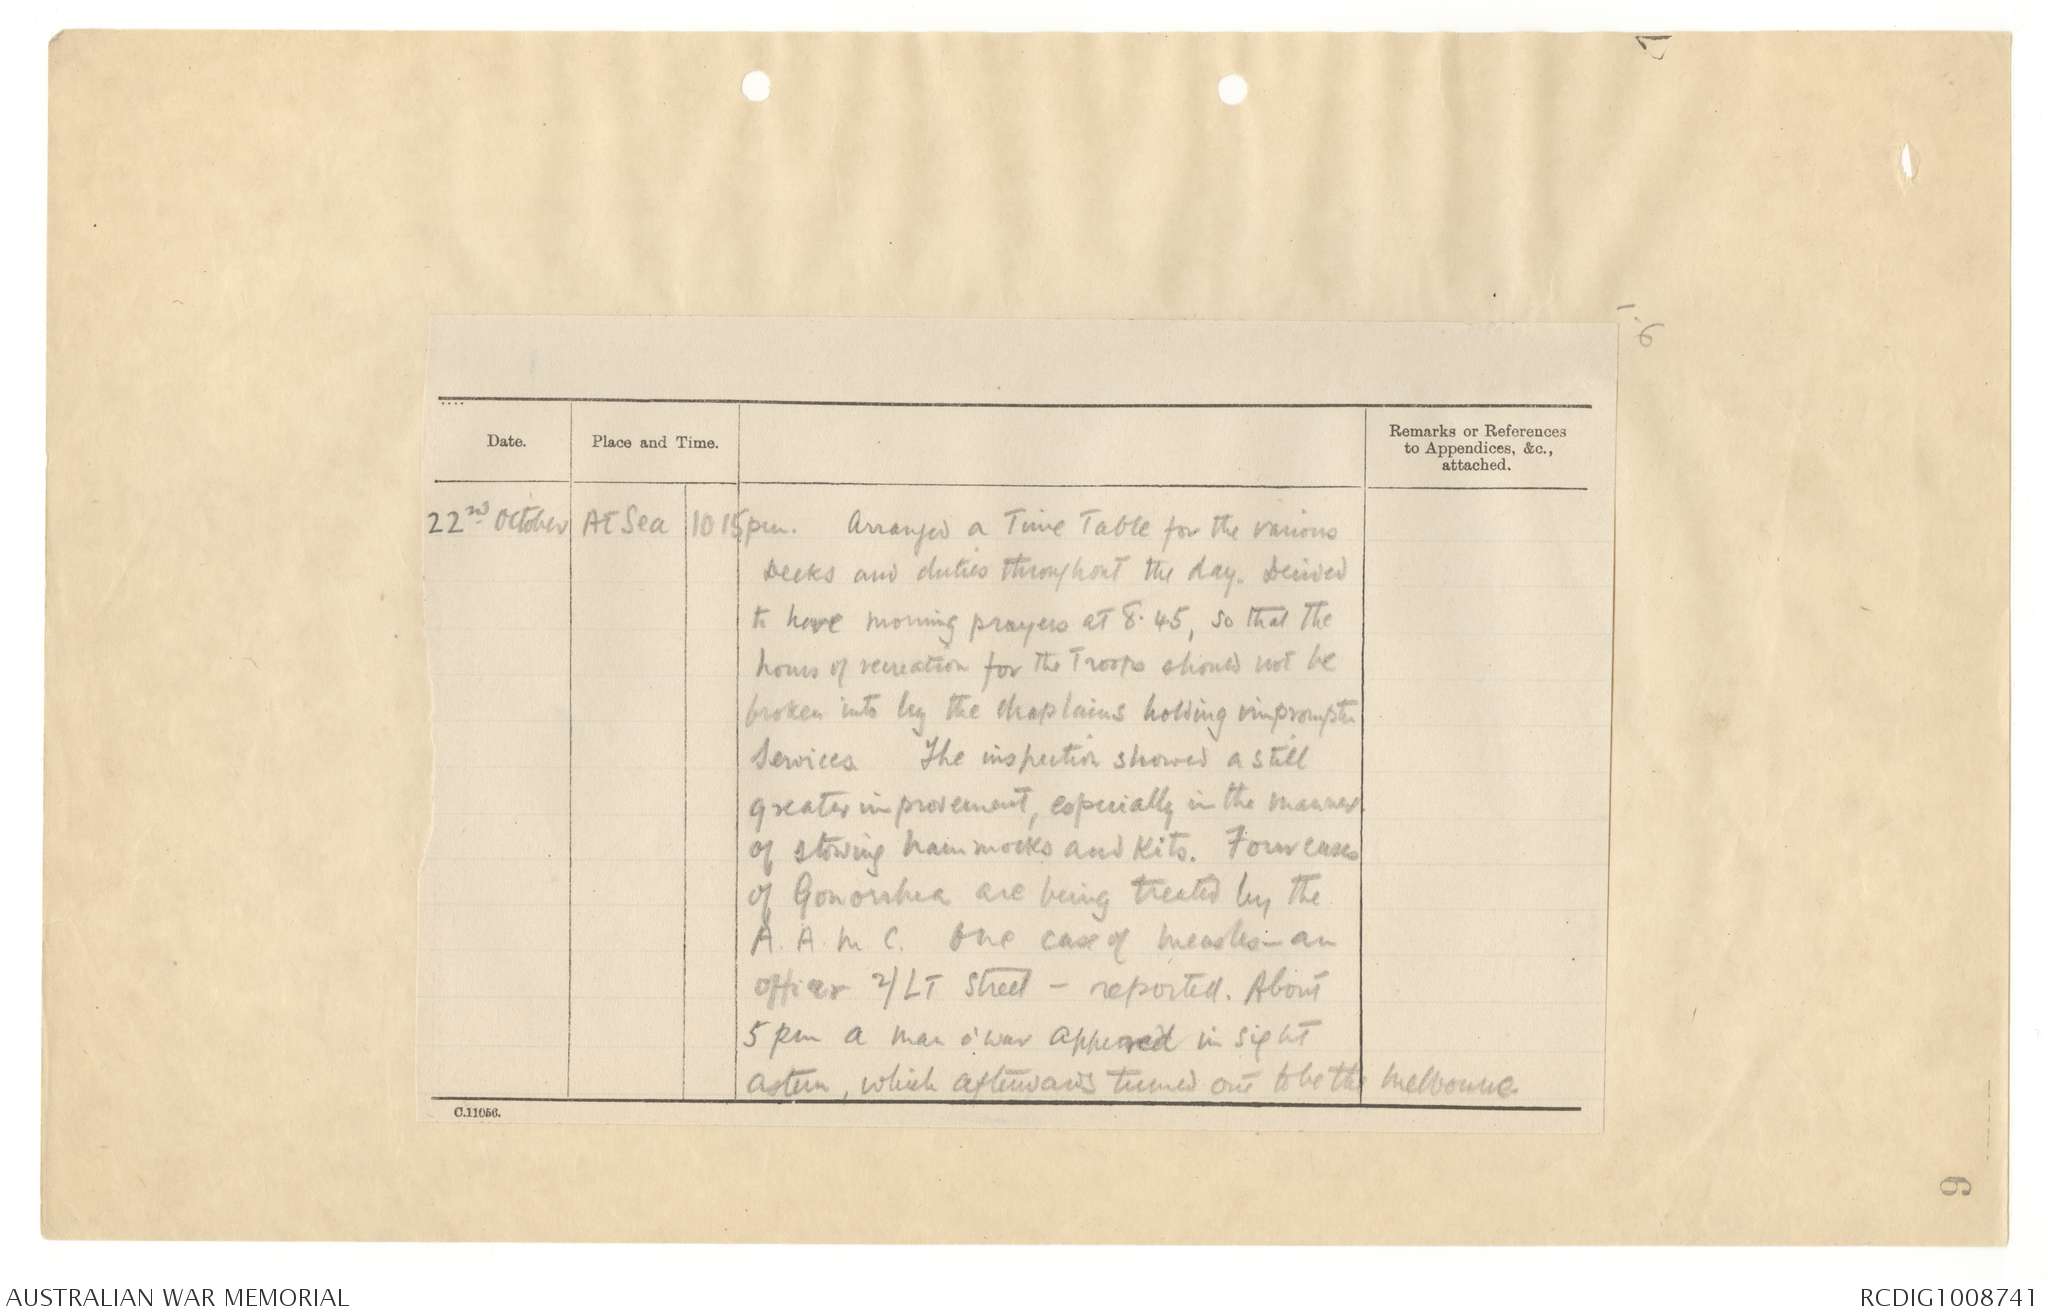 6
Date.
Place and Time.
Remarks or References
to Appendices, &c.,
attached.
22nd October At Sea 10 15pm. Arranged a Time Table for the various
Decks and duties throughout the day. Decided
to have morning prayers at 8.45, so that the
hours of recreation for the Troops should not be
broken into by the chaplains holding impromptu
Services. The inspection showed a still
greater improvement, especially in the manner
of stowing hammocks and kits. Four cases
of Gonorrhea are being treated by the
A. A. M. C. One case of measles - an
officer 2/LT Street - reported. About
5 pm a man o'war appeared in sight
astern, which afterwards turned out to be the Melbourne
C.11056.
6
AUSTRALIAN WAR MEMORIAL
RCDIG1008741